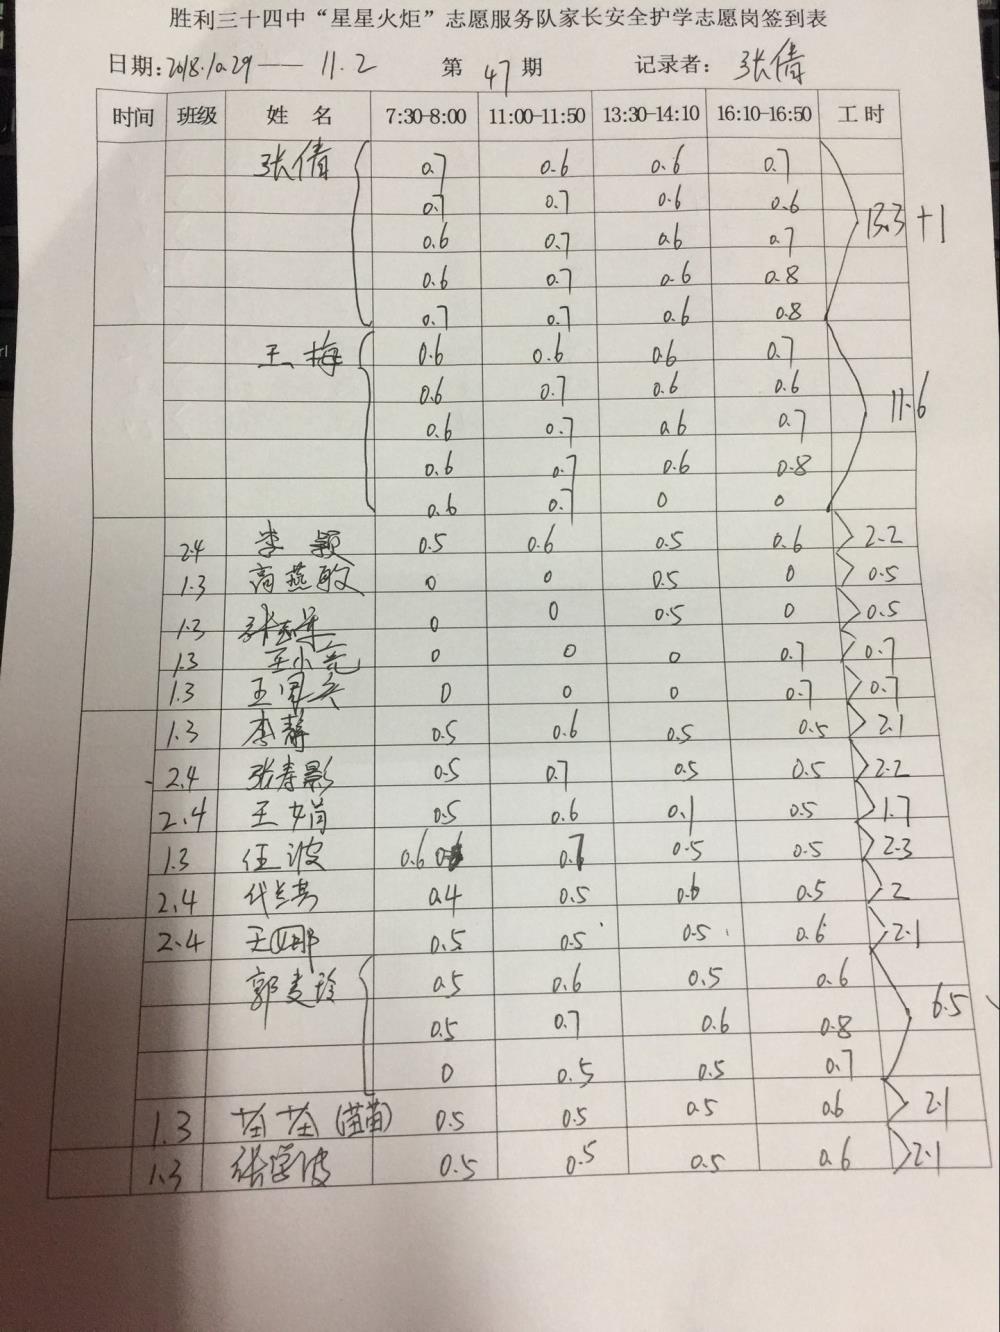 胜利三十四中“星星火炬”志愿服务队家长安全护学志愿岗签到表
日期: 2018.10.29 —— 11.2 第 47 期 记录者: 张倩
时间 班级 姓 名 7:30-8:00 11:00-11:50 13:30-14:10 16:10-16:50 工 时
张倩 0.7 0.6 0.6 0.7
0.7 0.7 0.6 0.6
0.6 0.7 0.6 0.7 13.3 +1
0.6 0.7 0.6 0.8
0.7 0.7 0.6 0.8
王梅 0.6 0.6 0.6 0.7
0.6 0.7 0.6 0.6
0.6 0.7 0.6 0.7 11.6
0.6 0.7 0.6 0.8
0.6 0.7 0 0
2.4 李颖 0.5 0.6 0.5 0.6 2.2
1.3 高燕敏 0 0 0.5 0 0.5
1.3 0 0 0.5 0 0.5
1.3 王小亮 0 0 0 0.7 0.7
1.3 王国兵 0 0 0 0.7 0.7
1.3 李静 0.5 0.6 0.5 0.5 2.1
2.4 张寿影 0.5 0.7 0.5 0.5 2.2
2.4 王娟 0.5 0.6 0.1 0.5 1.7
1.3 任波 0.6 0.7 0.5 0.5 2.3
2.4 0.4 0.5 0.6 0.5 2
2.4 王娜 0.5 0.5 0.5 0.6 2.1
郭麦玲 0.5 0.6 0.5 0.6
0.5 0.7 0.6 0.8 6.5
0 0.5 0.5 0.7
1.3 (苗苗) 0.5 0.5 0.5 0.6 2.1
1.3 张学波 0.5 0.5 0.5 0.6 2.1